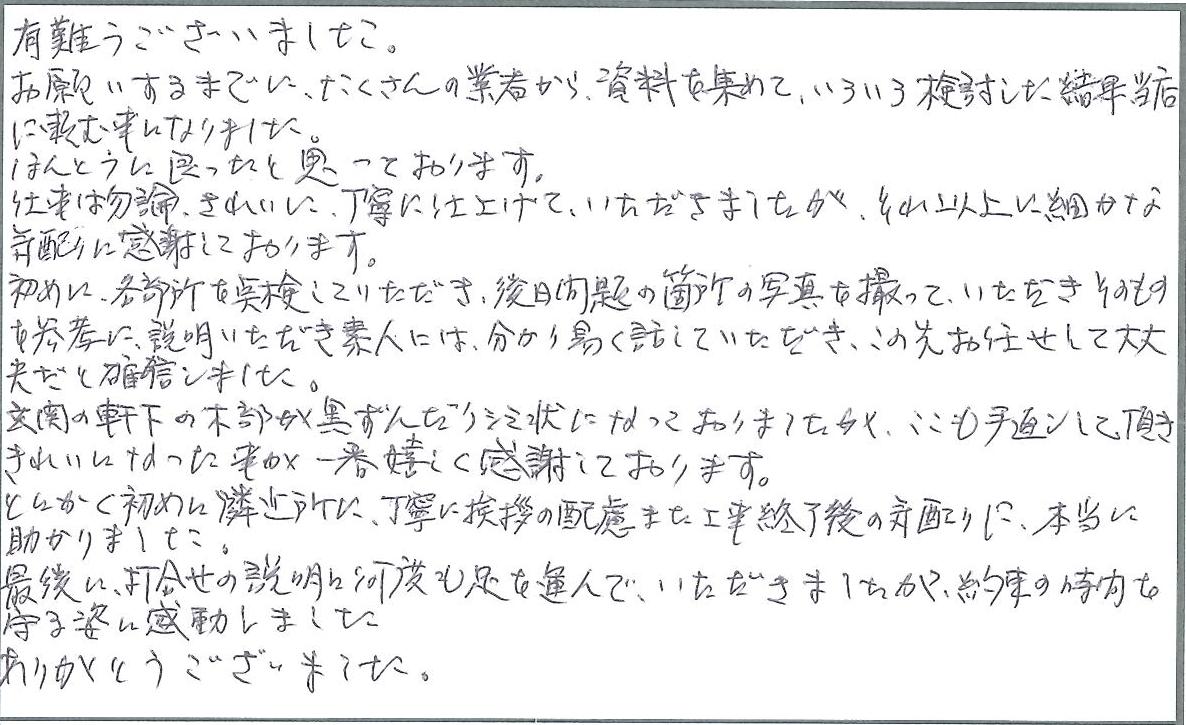 有難うございました。
お願いするまでに、たくさんの業者から、資料を集めて、いろいろ検討した結果当店
に頼む事になりました。
ほんとうに良ったと思っております。
仕事は勿論、きれいに、丁寧に仕上げて、いただきましたが、それ以上に細かな
気配りに感謝しております。
初めに、各部所を点検していただき、後日問題の箇所の写真を撮って、いただきそのもの
を参考に、説明いただき素人には、分かり易く話していただき、この先お任せして大丈
夫だと確信しました。
玄関の軒下の木部が黒ずんだりシミ状になっておりましたが、ここも手直しして頂き
きれいになった事が一番嬉しく感謝しております。
とにかく初めに隣近所に、丁寧に挨拶の配慮また工事終了後の気配りに、本当に
助かりました。
最後に、打合せの説明に何度も足を運んで、いただきましたが、約束の時間を
守る姿に感動しました
ありがとうございました。